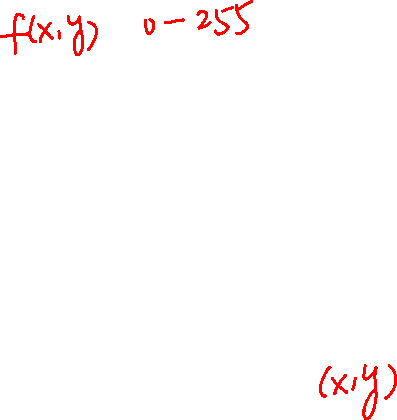 f(x,y) 0-255
(x,y)